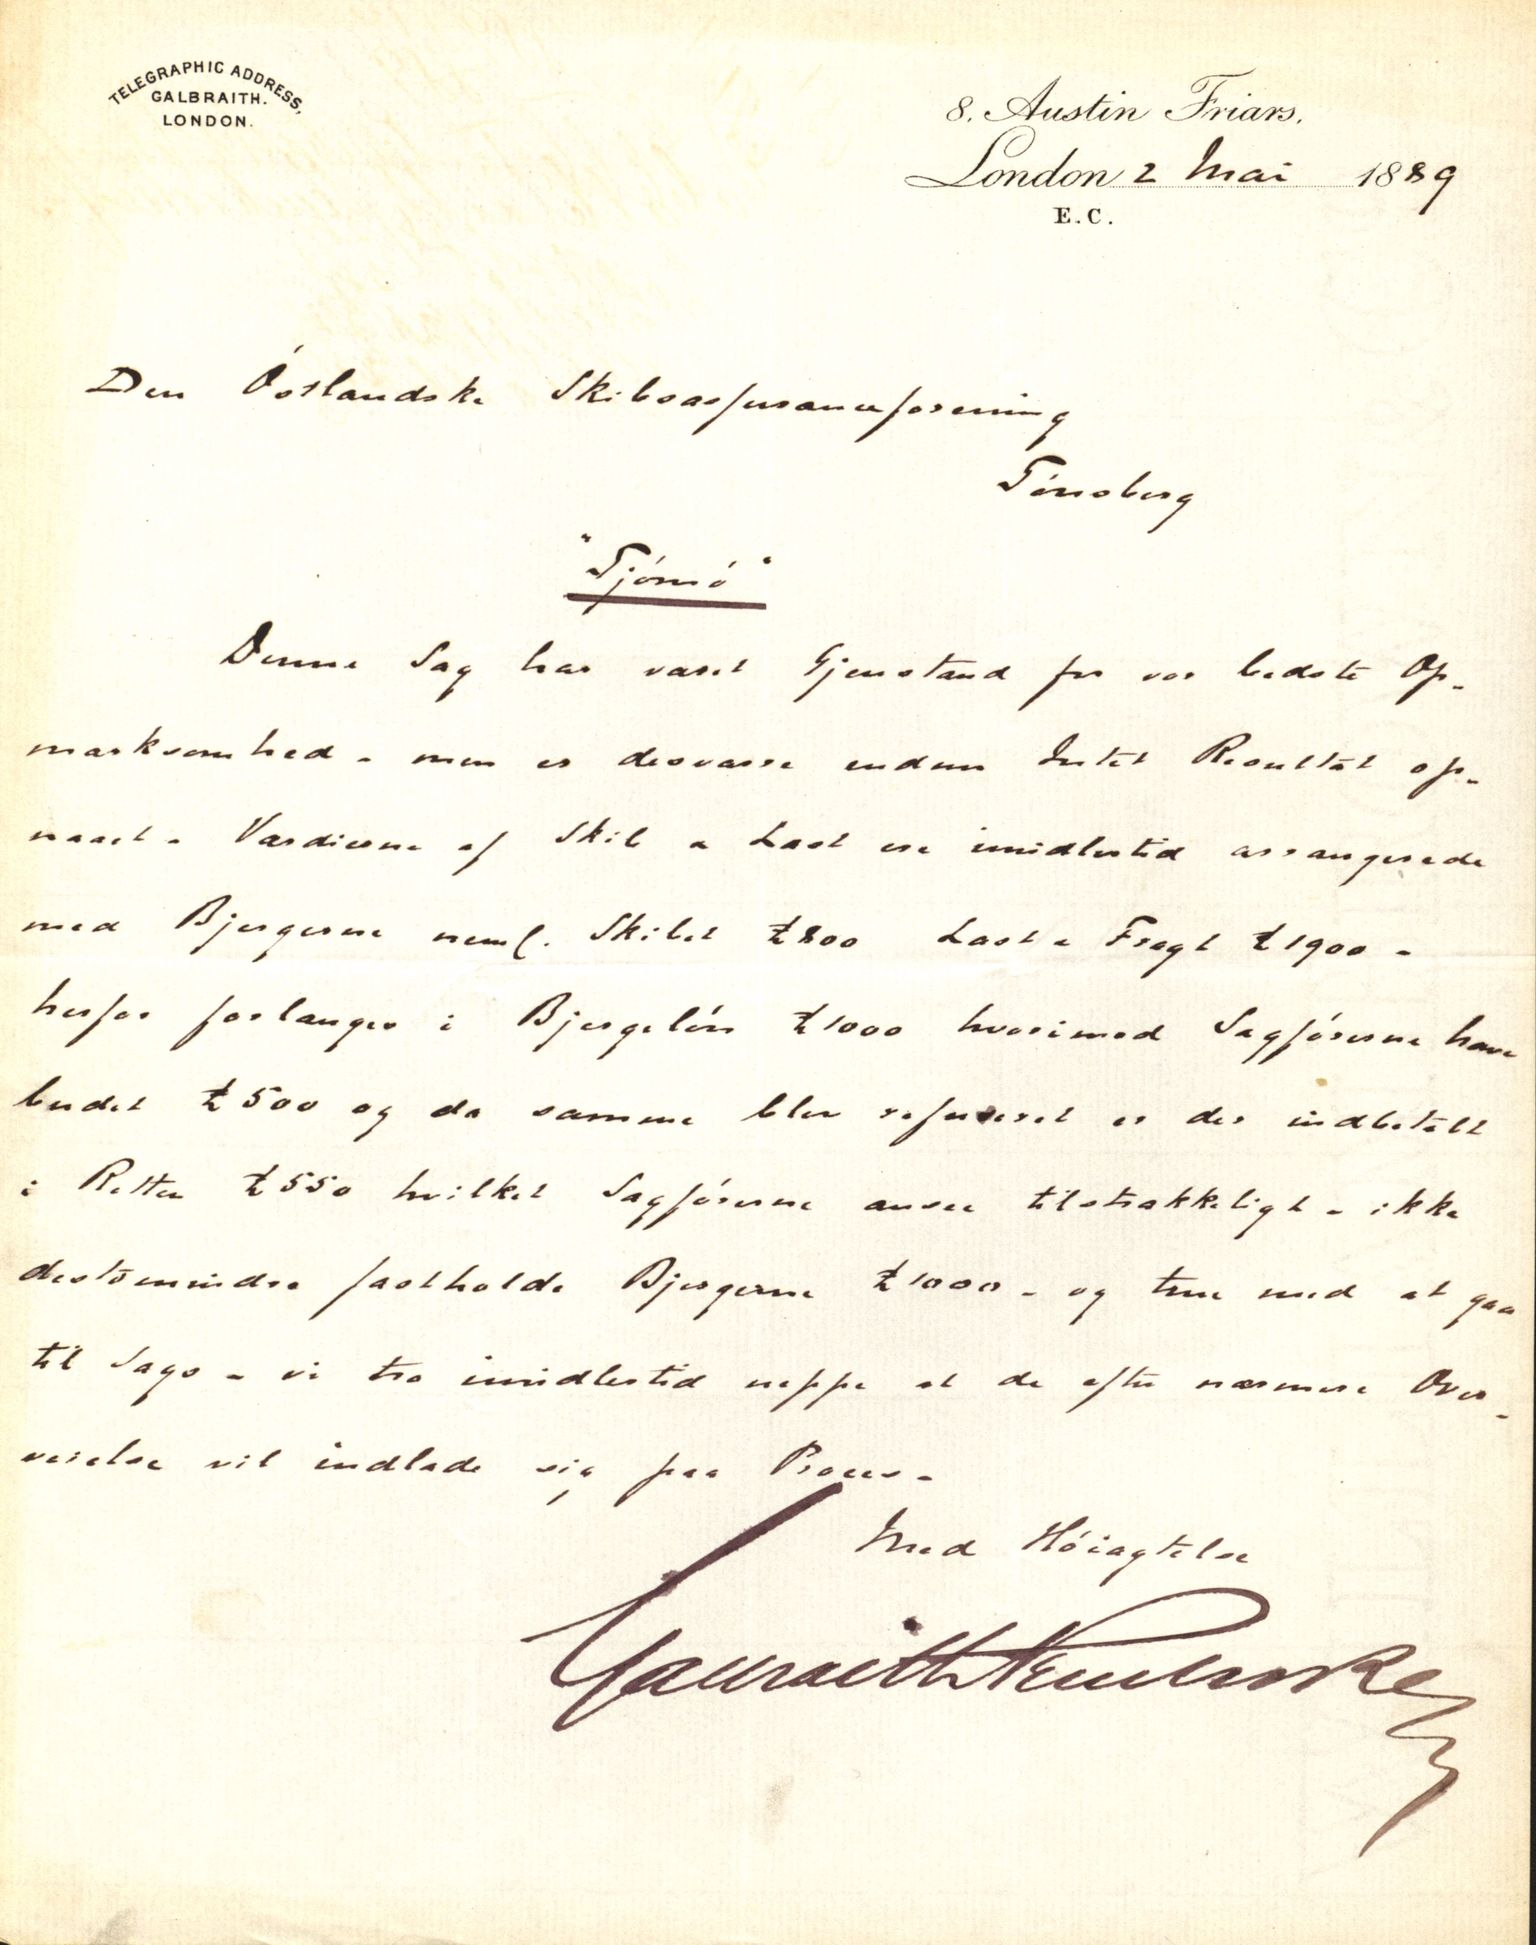 TELEGRAPHIC ADDRESS,
GALBRAITH.
LONDON.
8. Austin Friars.
London 2 Mai 1889
E.C.
Den Óstlandske Skibsassuranceforening
Tónsberg
"Tjómó"
Denne Sag har været Gjenstand for vor bedste Op-
mærksomhed - men er desværre endnu Intet Resultat op-
naaet - Værdierne af Skib & Last ere imidlertid arrangerede
med Bjergerne neml. Skibet £800 Last & Fragt £1900 -
herfor forlanges i Bjergelón £1000 hvorimod Sagfórerne have
budet £500 og da samme blev refuseret er der indbetalt
i Retten £550 hvilket Sagfórerne ansee tilstrækkeligt - ikke
destomindre fastholde Bjergerne £1000 - og true med at gaa
til Sags - vi tro imidlertid neppe at de efter nærmere Over-
veielse vil indlade sig paa Proces -
Med Hóiagtelse
Galbraith Pembroke